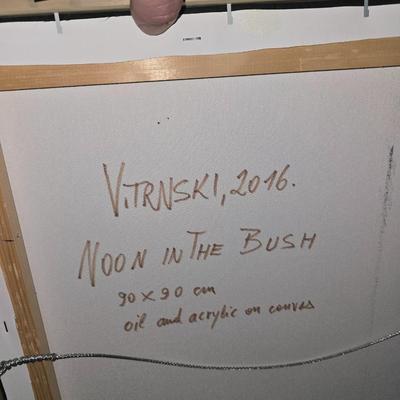 VITRNSKI, 2016.
NOON IN THE BUSH
90 x 90 cm
oil and acrylic on canvas